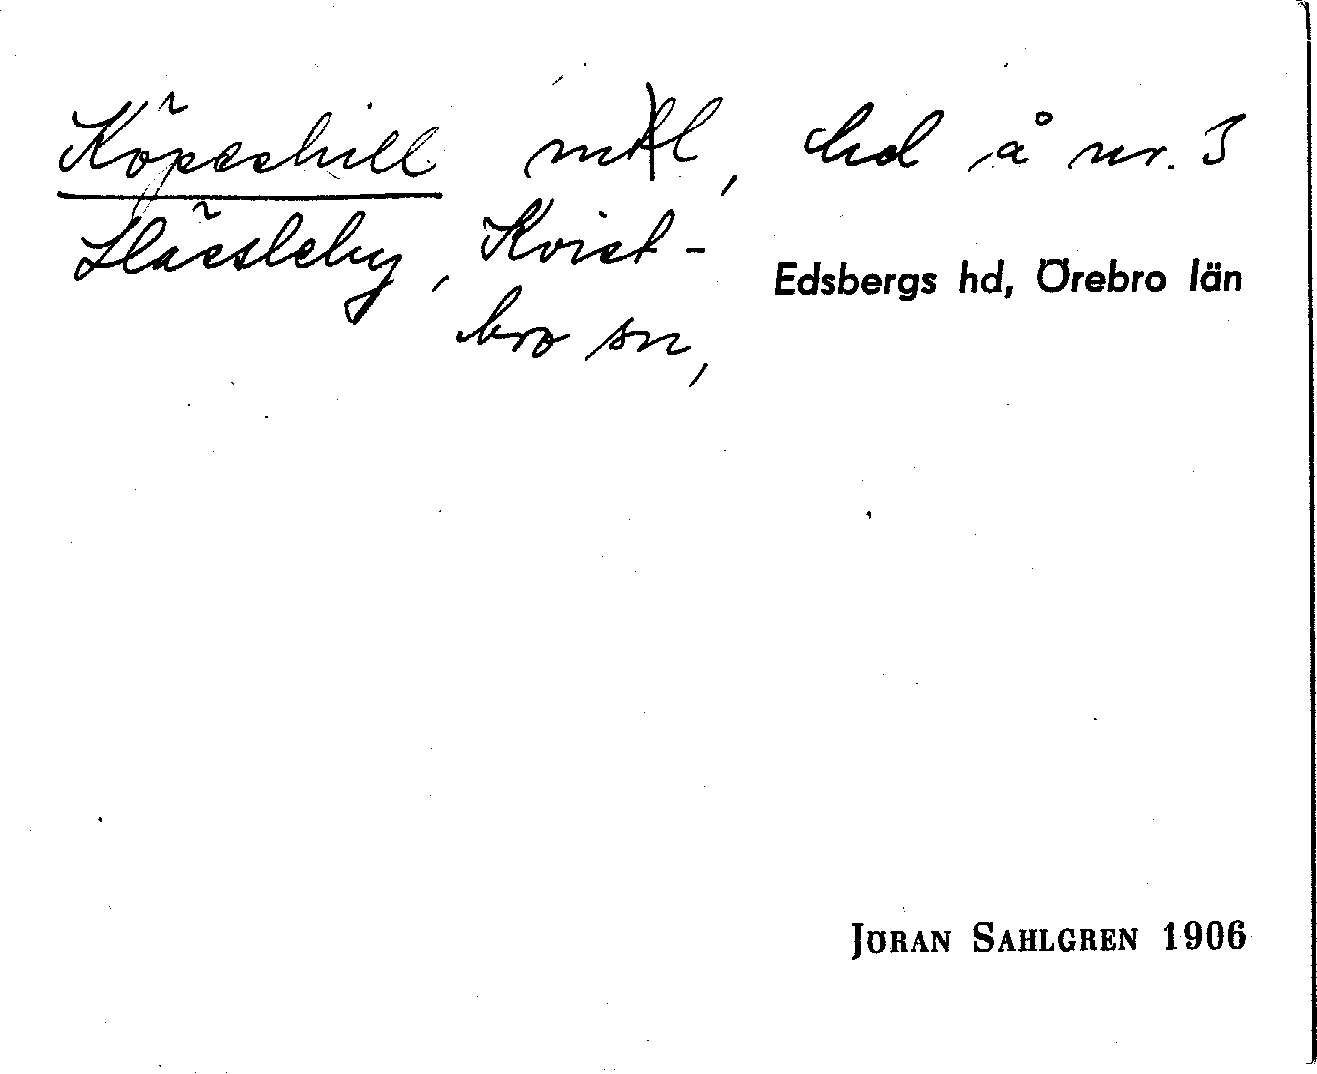 Köpeshill mkl, hd å nr. 3
Hässleby, Kvist-
bro sn,
Edsbergs hd, Örebro län
JÖRAN SAHLGREN 1906